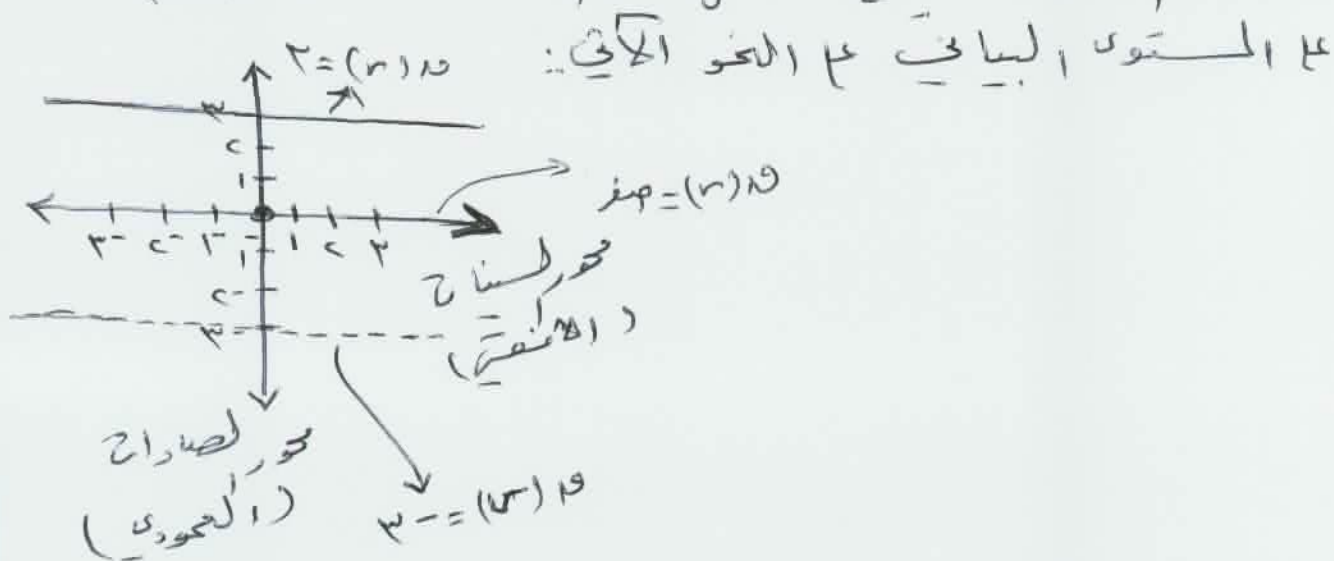 على المستوى البياني على النحو الآتي:
ق(س) = ٣
٣
٢
١
ق(س) = صفر
-٣ -٢ -١ ١ ٢ ٣
محور السينات
(الأفقي)
-١
-٢
-٣
محور الصادات
(العمودي)
ق(س) = -٣